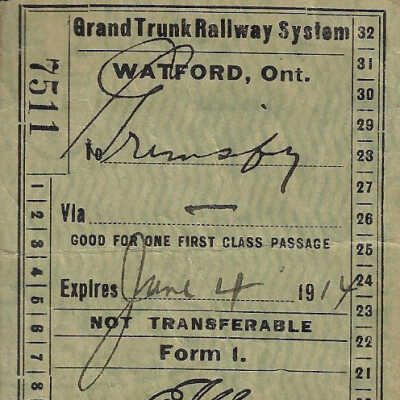 Grand Trunk Railway System
WATFORD, Ont.
7511
To Grimsby
Via —
GOOD FOR ONE FIRST CLASS PASSAGE
Expires June 4 1914
NOT TRANSFERABLE
Form 1.
1 2 3 4 5 6 7 8
32
31
30
29
28
27
26
25
24
23
22
21